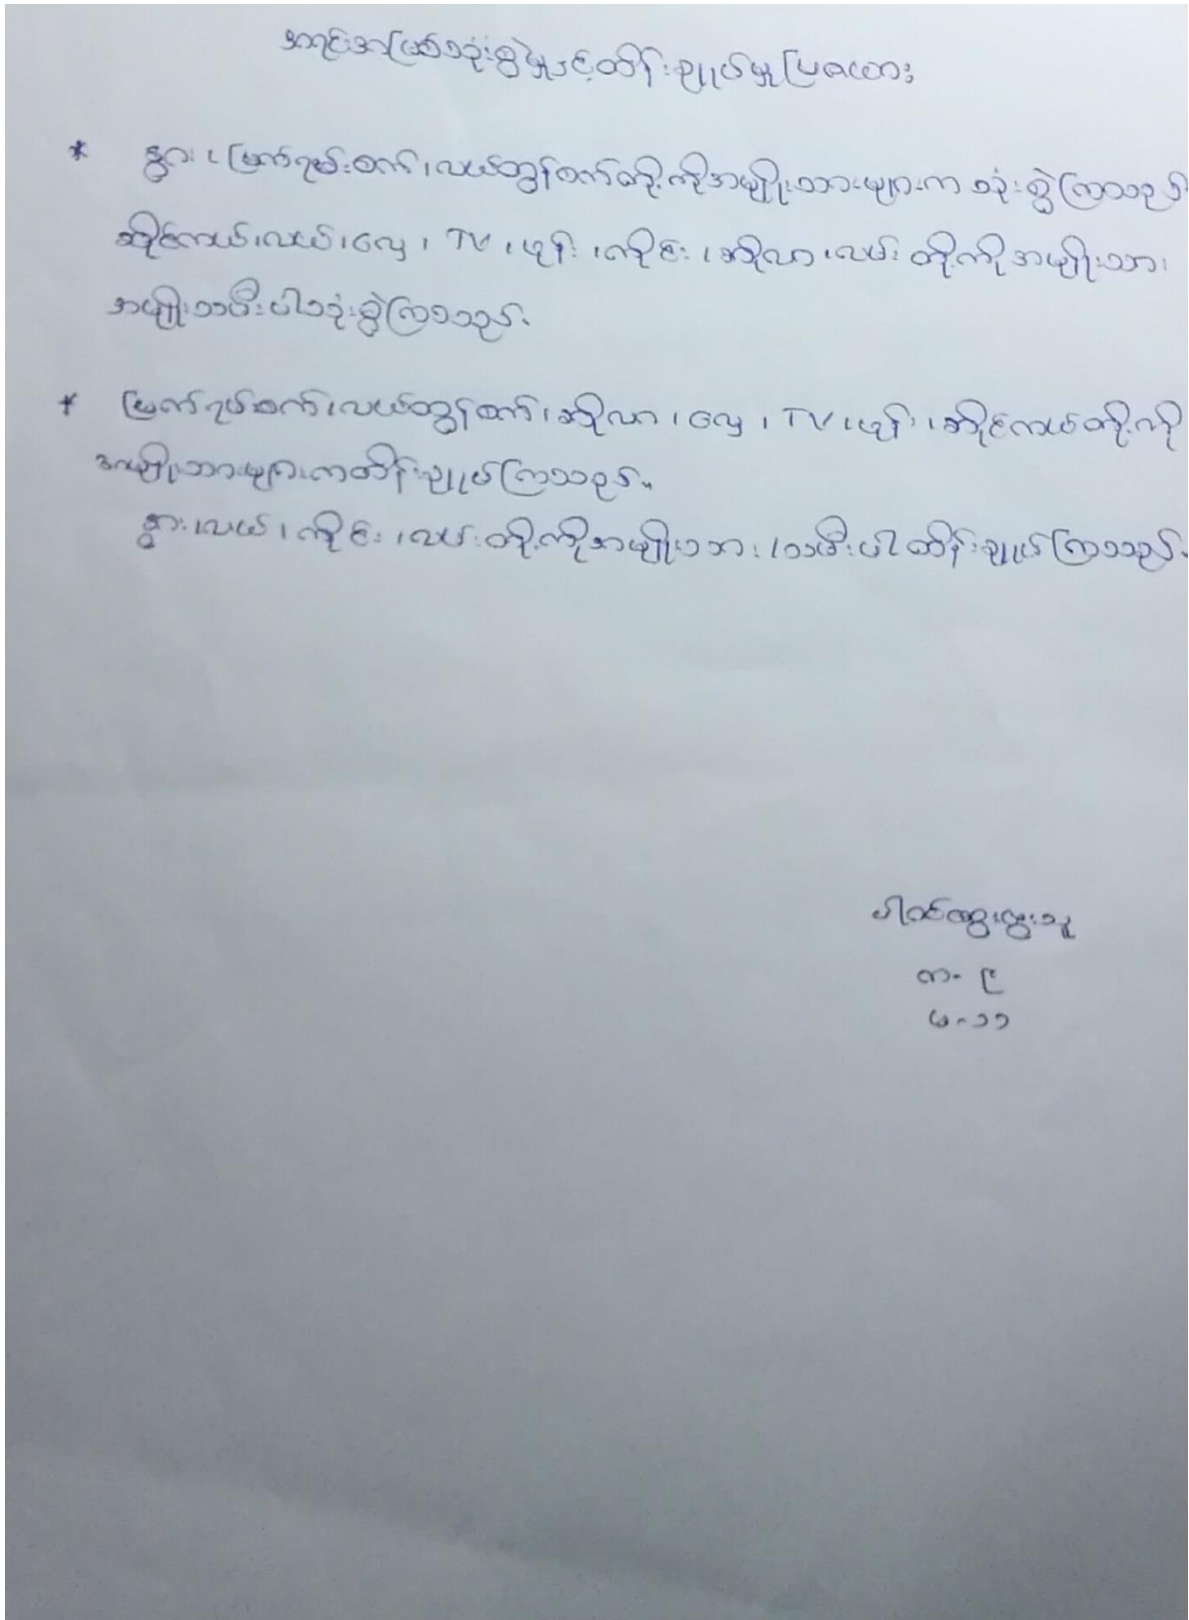 အရင်းအမြစ်သုံးစွဲမှုနှင့်ထိန်းချုပ်မှုပြဇယား
* နွား၊ မြက်ရိတ်စက်၊ လယ်ထွန်စက်တို့ကိုအမျိုးသားများက သုံးစွဲကြသည်။
ဆိုင်ကယ်၊ လယ်၊ လှေ၊ TV၊ ဖုန်း၊ ကိုင်း၊ ဆိုလာ၊ လမ်း တို့ကိုအမျိုးသား၊
အမျိုးသမီးပါသုံးစွဲကြသည်။
* မြက်ရိတ်စက်၊ လယ်ထွန်စက်၊ ဆိုလာ၊ လှေ၊ TV၊ ဖုန်း၊ ဆိုင်ကယ်တို့ကို
အမျိုးသားများကထိန်းချုပ်ကြသည်။
နွား၊ လယ်၊ ကိုင်း၊ လမ်းတို့ကိုအမျိုးသား၊ သမီးပါထိန်းချုပ်ကြသည်။
ပါဝင်ဆွေးနွေးသူ
က - ၉
မ - ၁၁